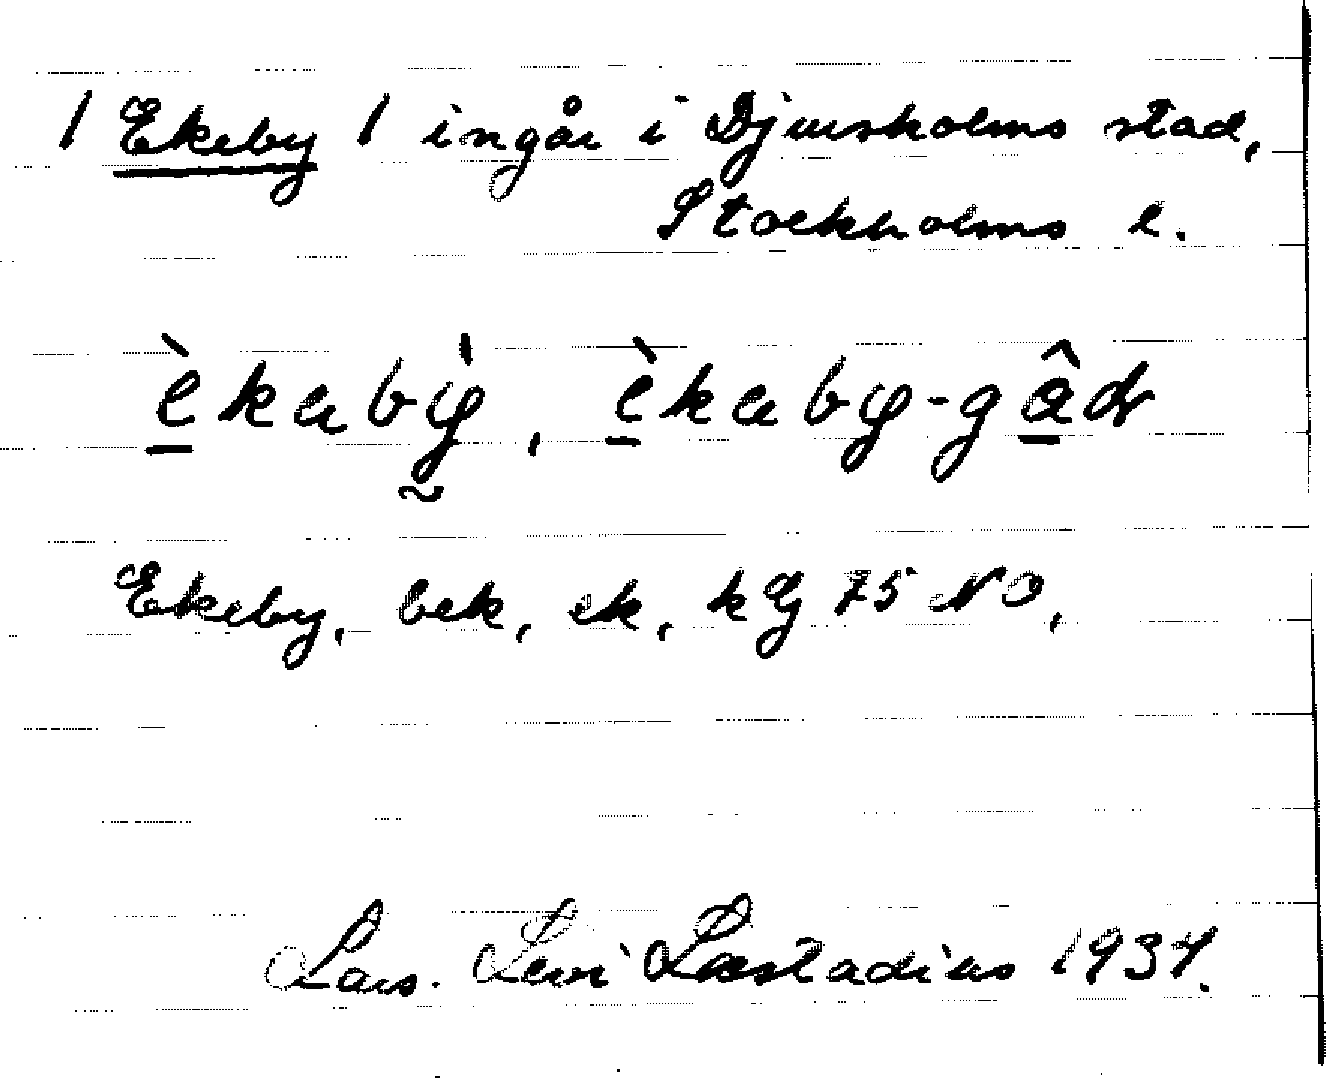 / Ekeby / ingår i Djursholms stad,
Stockholms l.
è̱kabỳ̰, è̱kaby-gâ̱ḍ
Ekeby, bek, ek, kG 75 NO,
Lars. Levi Læstadius 1934.